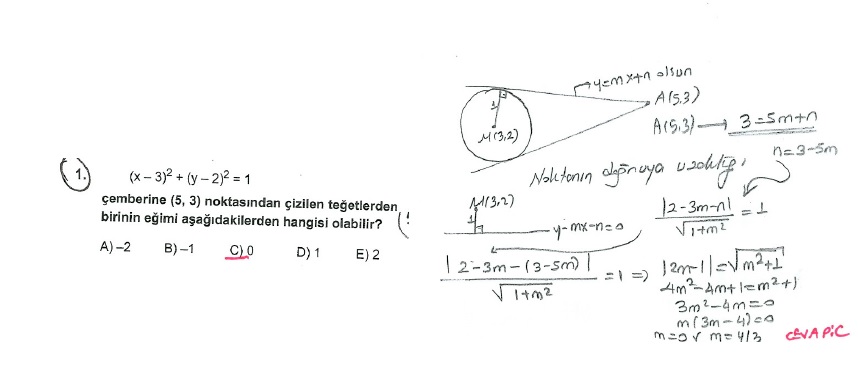 1.
(x – 3)² + (y – 2)² = 1
çemberine (5, 3) noktasından çizilen teğetlerden
birinin eğimi aşağıdakilerden hangisi olabilir?
A) –2 B) –1 C) 0 D) 1 E) 2
y=mx+n olsun
A(5,3)
1
M(3,2)
A(5,3) → 3=5m+n
n=3-5m
Noktanın doğruya uzaklığı,
M(3,2)
1
y-mx-n=0
|2-3m-n| / √1+m² = 1
|2-3m-(3-5m)| / √1+m² = 1 ⇒ |2m-1|=√m²+1
4m²-4m+1=m²+1
3m²-4m=0
m(3m-4)=0
m=0 v m=4/3
CEVAP:C